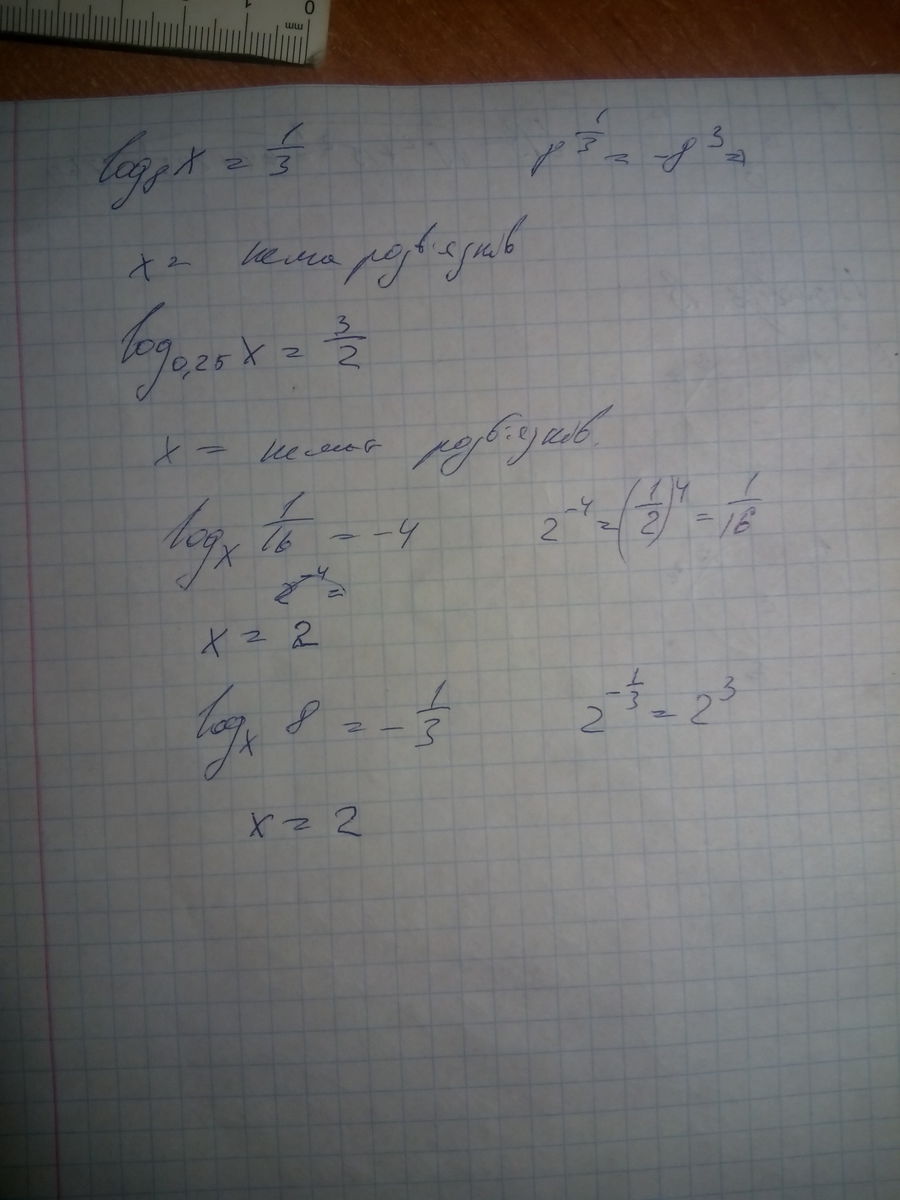 0
1
mm
log₈ x = 1/3    8^(1/3) = -8³ =
x = нема розв'язків
log₀,₂₅ x = 3/2
x = немає розв'язків.
logₓ 1/16 = -4    2⁻⁴ = (1/2)⁴ = 1/16
2⁻⁴ =
x = 2
logₓ 8 = -1/3    2^(-1/3) = 2³
x = 2